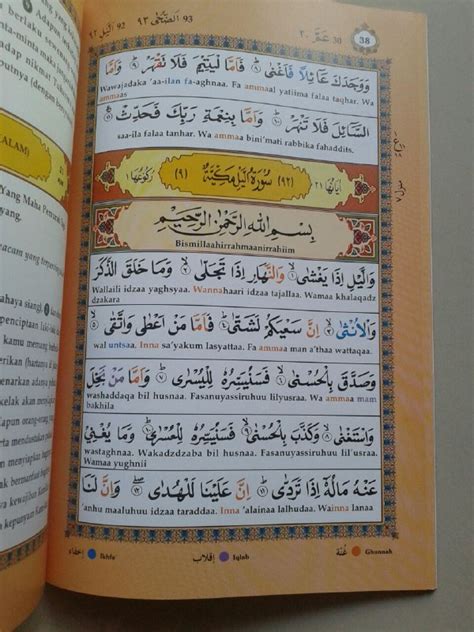 ٩٢ الّيل 92 ٩٣ الضّحى 93
٣٠ عمّ 30
38
وَوَجَدَكَ عَآئِلًا فَاَغْنٰى ۞ فَاَمَّا الْيَتِيْمَ فَلَا تَقْهَرْ ۞ وَاَمَّا
Wawajadaka 'aa-ilan fa-aghnaa. Fa ammaal yatiima falaa taqhar. Wa ammaas
السَّآئِلَ فَلَا تَنْهَرْ ۞ وَاَمَّا بِنِعْمَةِ رَبِّكَ فَحَدِّثْ
saa-ila falaa tanhar. Wa ammaa bini'mati rabbika fahaddits.
(٩٢) سُوْرَةُ الَّيْلِ مَكِّيَّةٌ (٩)
اٰيَاتُهَا ٢١
رُكُوْعُهَا ١
بِسْمِ اللهِ الرَّحْمٰنِ الرَّحِيْمِ
Bismillaahirrahmaanirrahiim
وَالَّيْلِ اِذَا يَغْشٰى ۞ وَالنَّهَارِ اِذَا تَجَلّٰى ۞ وَمَا خَلَقَ الذَّكَرَ
Wallaili idzaa yaghsyaa. Wannahaari idzaa tajallaa. Wamaa khalaqadz
dzakara
وَالْاُنْثٰى ۞ اِنَّ سَعْيَكُمْ لَشَتّٰى ۞ فَاَمَّا مَنْ اَعْطٰى وَاتَّقٰى
wal untsaa. Inna sa'yakum lasyattaa. Fa ammaa man a'thaa wattaqaa.
وَصَدَّقَ بِالْحُسْنٰى ۞ فَسَنُيَسِّرُهٗ لِلْيُسْرٰى ۞ وَاَمَّا مَنْ بَخِلَ
washaddaqa bil husnaa. Fasanuyassiruhuu lilyusraa. Wa ammaa mam
bakhila
وَاسْتَغْنٰى ۞ وَكَذَّبَ بِالْحُسْنٰى ۞ فَسَنُيَسِّرُهٗ لِلْعُسْرٰى ۞ وَمَا يُغْنِيْ
wastaghnaa. Wakadzdzaba bil husnaa. Fasanuyassiruhuu lil'usraa.
Wamaa yughnii
عَنْهُ مَالُهٗٓ اِذَا تَرَدّٰى ۞ اِنَّ عَلَيْنَا لَلْهُدٰى ۞ وَاِنَّ لَنَا
'anhu maaluhuu idzaa taraddaa. Inna 'alainaa lalhudaa. Wainna lanaa
اخفاء Ikhfa' اقلاب Iqlab غنة Ghunnah